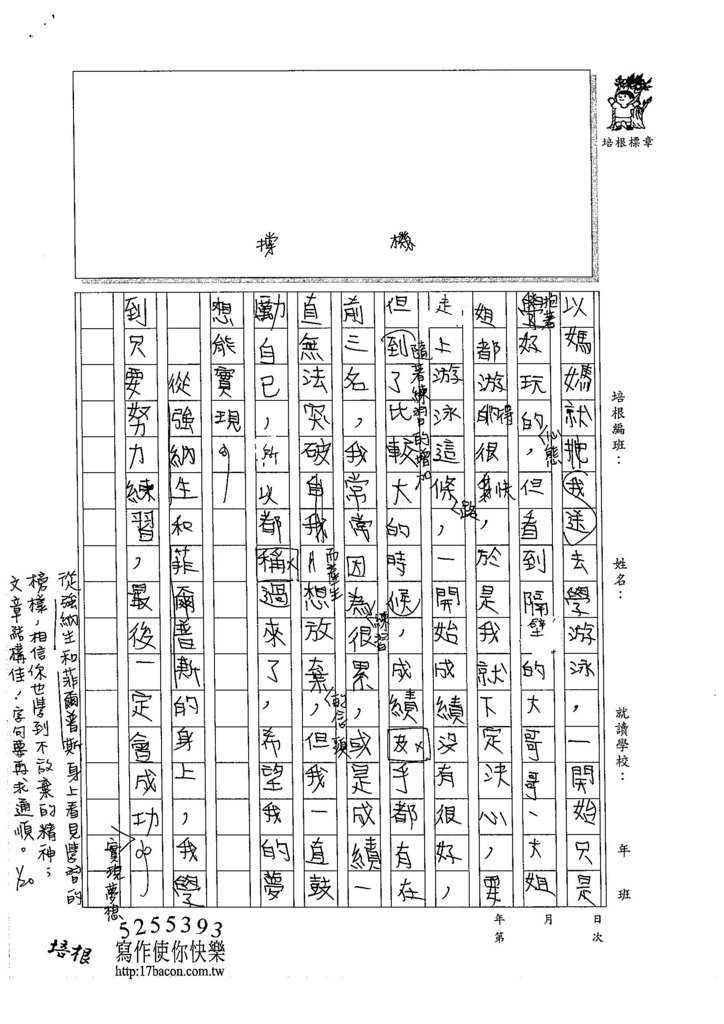 培根標章
撐
機
培根編班：
姓名：
就讀學校：
年
班
以媽媽就把我送去學游泳，一開始只是
抱著
學好玩的，但看到隔壁的大哥、大姐
心態
姐都游的很快，於是我就下定決心，要
得
走上游泳這條，一開始成績沒有很好，
路
但到了比較大的時候，成績女乎都有在
隨著練習的增加
前三名，我常常因為很累，或是成績一
練習
直無法突破自我，想放棄，但我一直鼓
而產生
的念頭
勵自己，所以都稱過來了，希望我的夢
想能實現。
從強納生和菲爾普斯的身上，我學
到只要努力練習，最後一定會成功。
實現夢想
從強納生和菲爾普斯身上看見學習的
榜樣，相信你也學到不放棄的精神；
文章結構佳，字句要再求通順。1/20
年
月
日
第
次
5255393
培根
寫作使你快樂
http:17bacon.com.tw